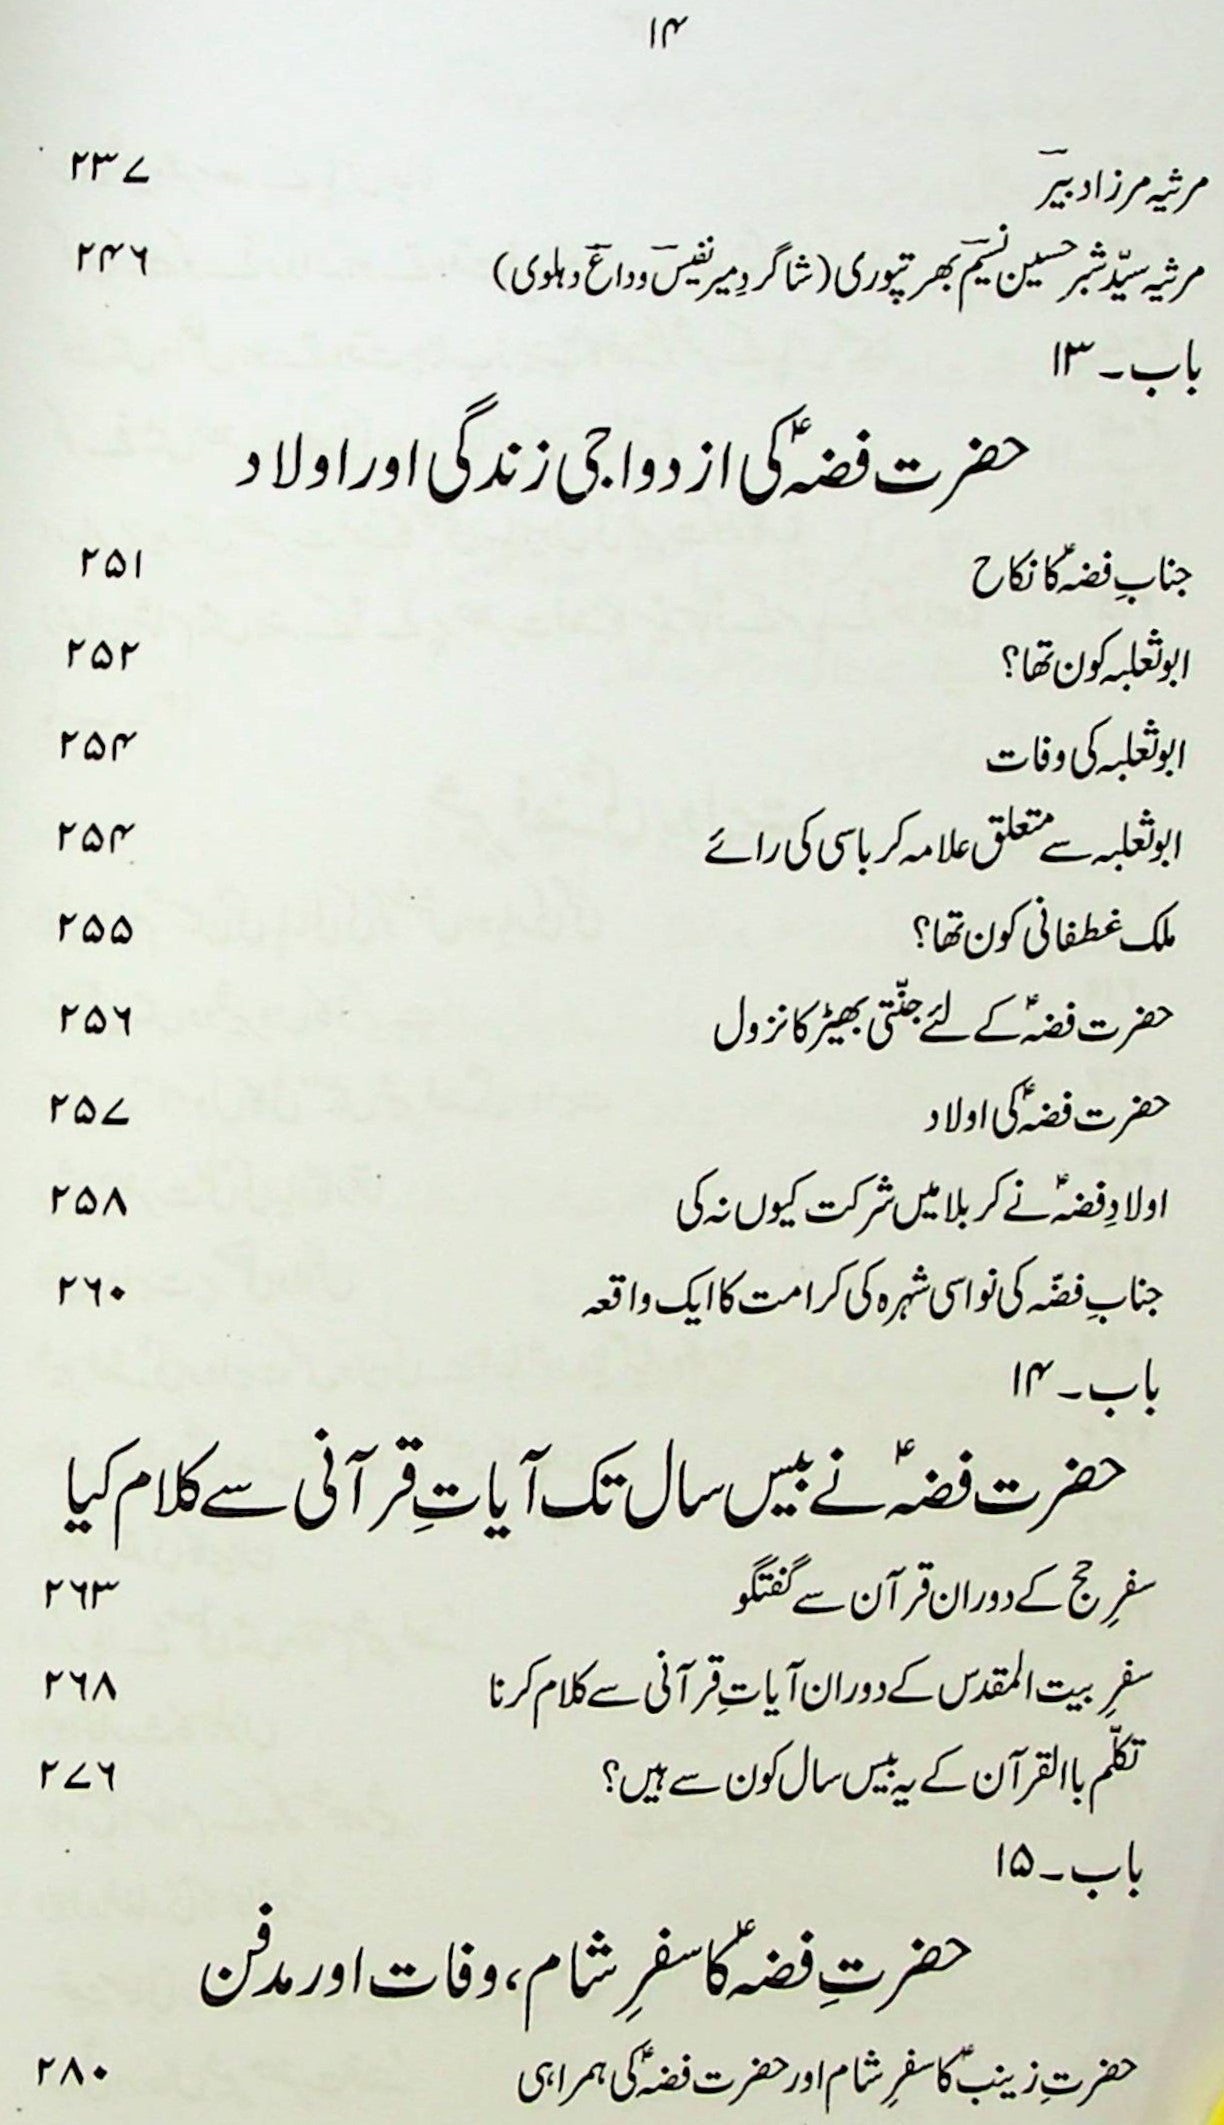 ۱۴
مرثیہ مرزا دبیرؔ ۲۳۷
مرثیہ سیّد شبر حسین نسیمؔ بھرتپوری (شاگردِ میر نفیسؔ و داغؔ دہلوی) ۲۴۶
باب۔۱۳
حضرت فضہؑ کی ازدواجی زندگی اور اولاد
جنابِ فضہؑ کا نکاح ۲۵۱
ابو ثعلبہ کون تھا؟ ۲۵۲
ابو ثعلبہ کی وفات ۲۵۴
ابو ثعلبہ سے متعلق علامہ کرباسی کی رائے ۲۵۴
ملک غطفانی کون تھا؟ ۲۵۵
حضرت فضہؑ کے لئے جنّتی بھیڑ کا نزول ۲۵۶
حضرت فضہؑ کی اولاد ۲۵۷
اولادِ فضہؑ نے کربلا میں شرکت کیوں نہ کی ۲۵۸
جنابِ فضّہ کی نواسی شہرہ کی کرامت کا ایک واقعہ ۲۶۰
باب۔۱۴
حضرت فضہؑ نے بیس سال تک آیاتِ قرآنی سے کلام کیا
سفرِ حج کے دوران قرآن سے گفتگو ۲۶۳
سفرِ بیت المقدس کے دوران آیاتِ قرآنی سے کلام کرنا ۲۶۸
تکلّم باالقرآن کے یہ بیس سال کون سے ہیں؟ ۲۷۶
باب۔۱۵
حضرتِ فضہؑ کا سفرِ شام، وفات اور مدفن
حضرتِ زینبؑ کا سفرِ شام اور حضرت فضہؑ کی ہمراہی ۲۸۰